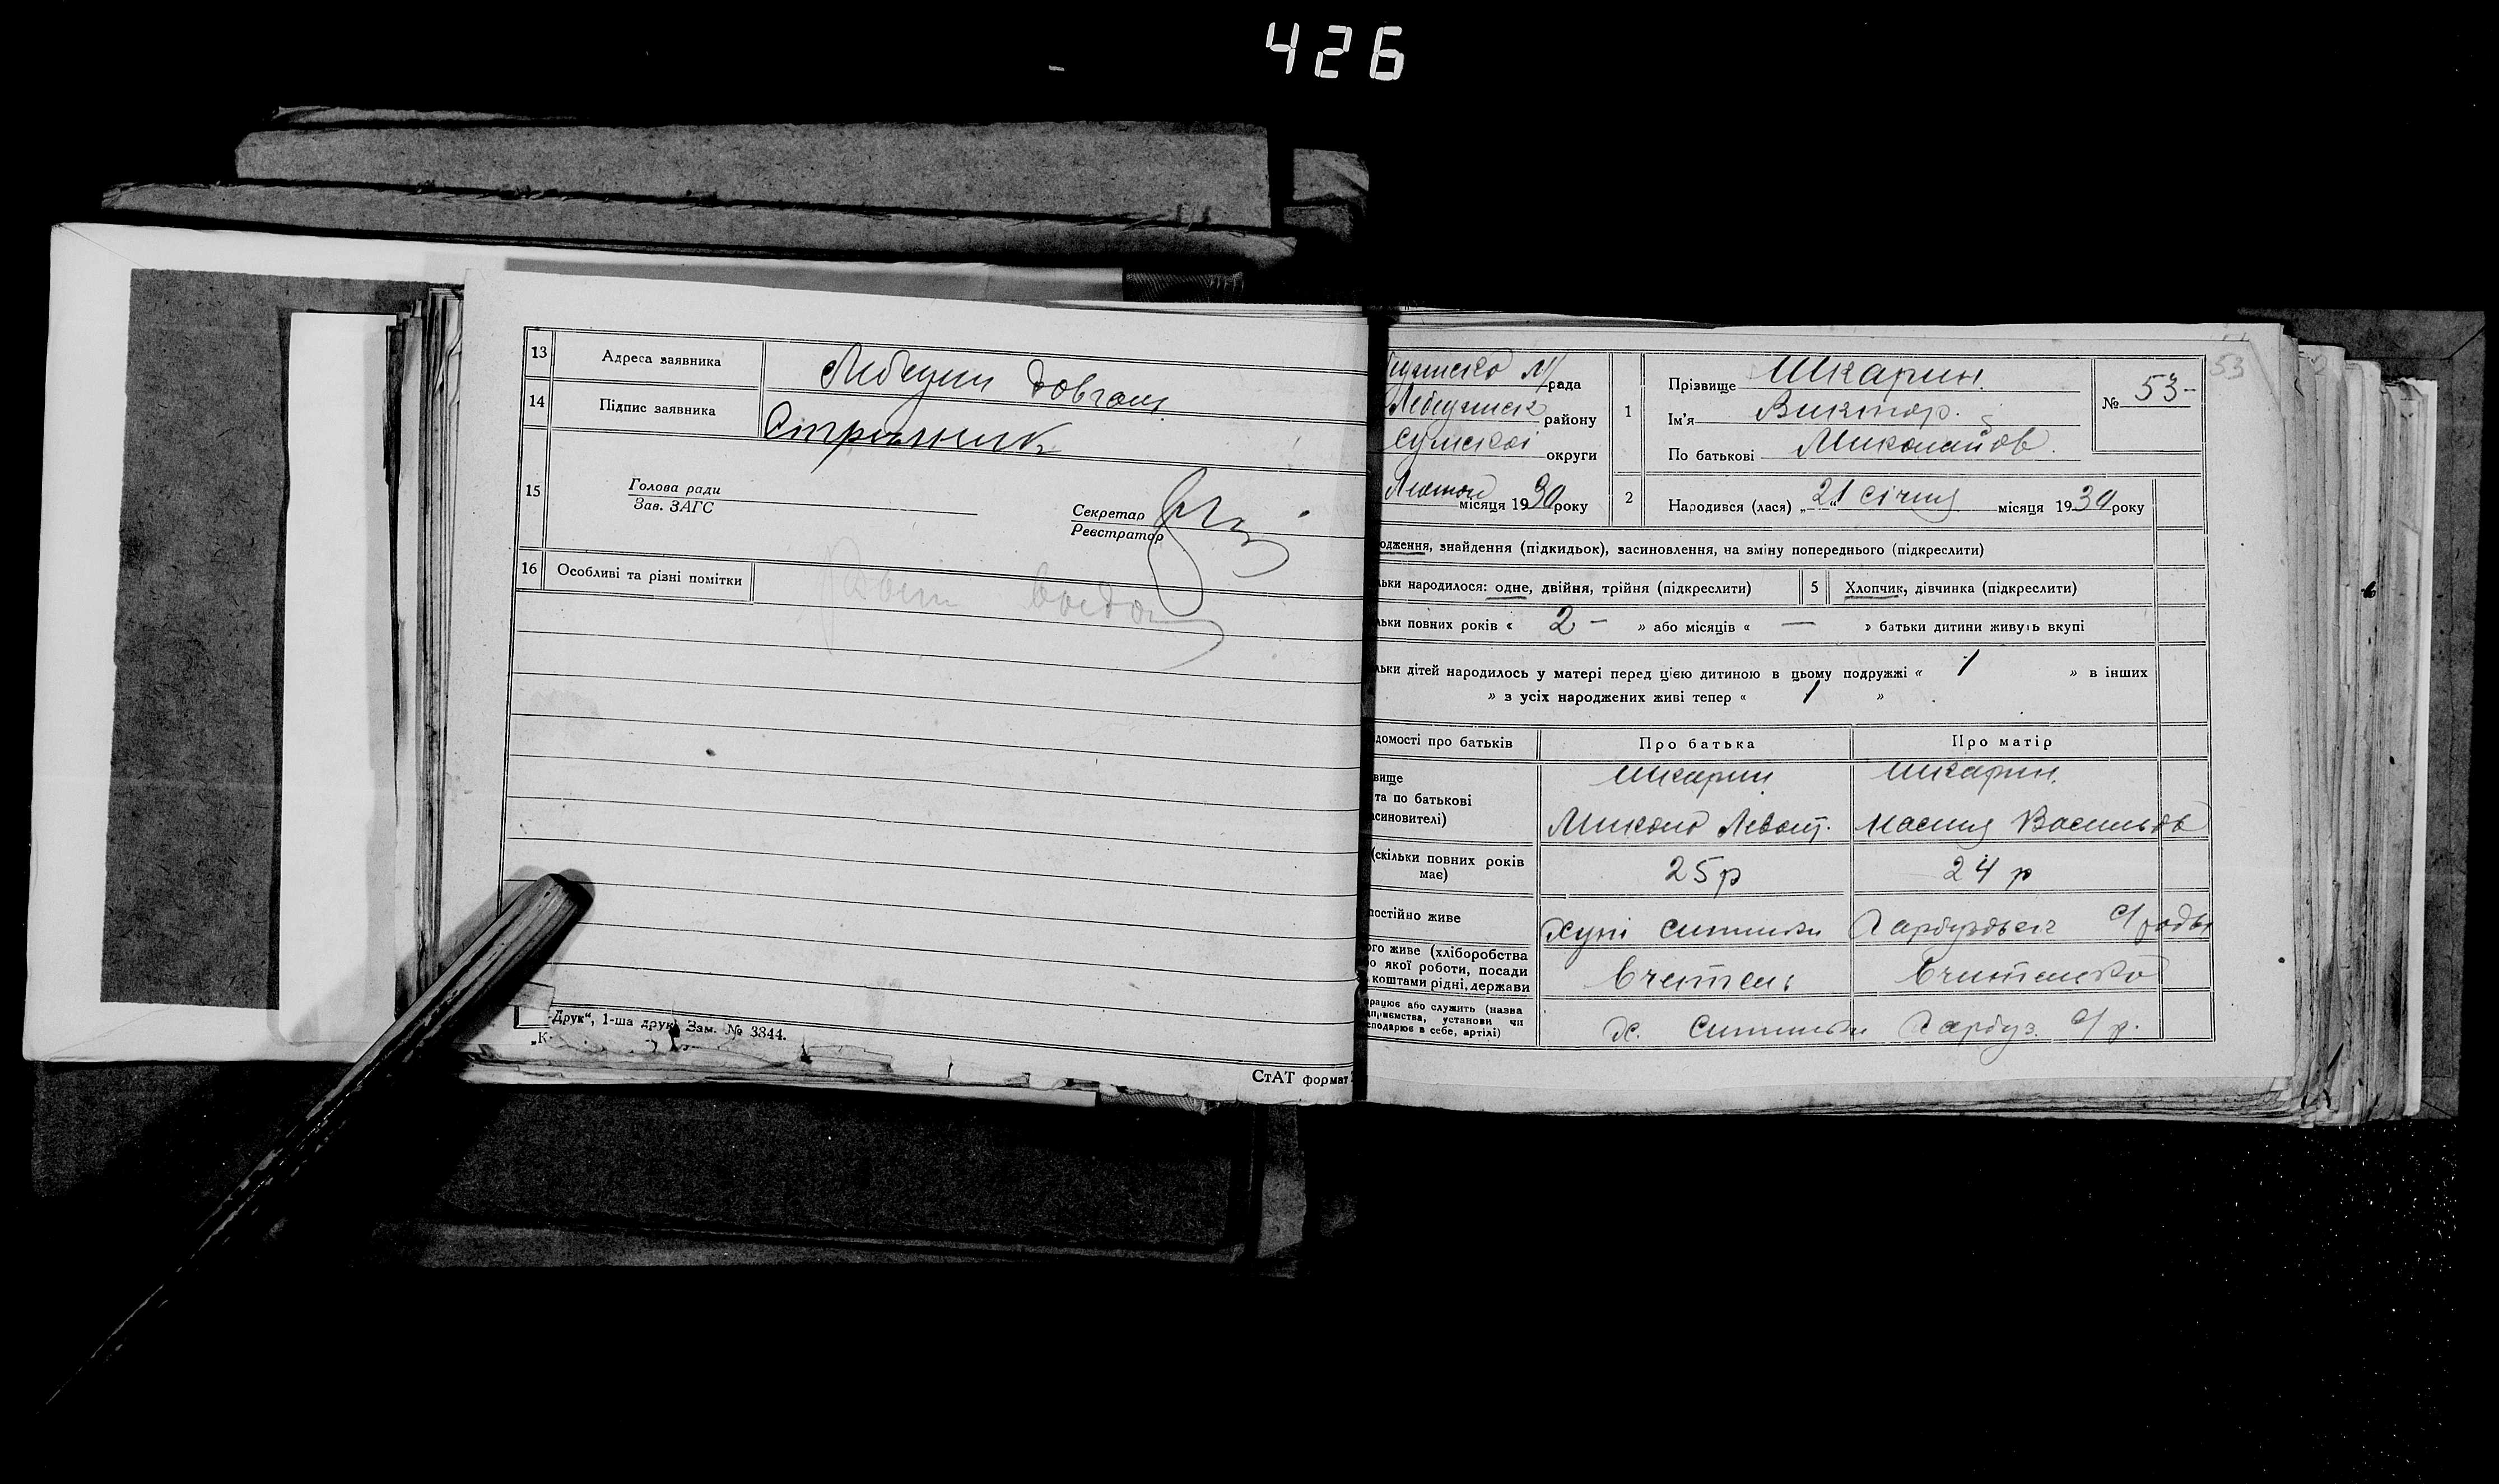 426
13 Адреса заявника Лебедин Довгал
14 Підпис заявника Стрільник
15 Голова ради
Зав. ЗАГС
Секретар
Реєстратор
16 Особливі та різні помітки
„К-Друк“, 1-ша друк. Зам. № 3844.
СтАТ формат
53
рада
Лебединск району
Сумской округи
Лютого місяця 1930 року
1 Прізвище Шкарин.
Ім'я Виктор.
По батькові Миколайов.
№ 53-
2 Народився (лася) „21“ січня місяця 1930 року
одження, знайдення (підкидьок), засиновлення, на зміну попереднього (підкреслити)
льки народилося: одне, двійня, трійня (підкреслити) 5 Хлопчик, дівчинка (підкреслити)
льки повних років « 2 - » або місяців « — » батьки дитини живуть вкупі
льки дітей народилось у матері перед цією дитиною в цьому подружжі « 1 » в інших
» з усіх народжених живі тепер « 1 »
домості про батьків Про батька Про матір
вище Шкарин Шкарин.
та по батькові
синовителі) Микола Васильов
(скільки повних років має) 25 р 24 р
постійно живе Хуті с/ради
ого живе (хліборобства
о якої роботи, посади
коштами рідні, держави вчитель вчителька
працює або служить (назва
підприємства, установи чи
сподарює в себе, артілі) х. Гарбуз. с/р.